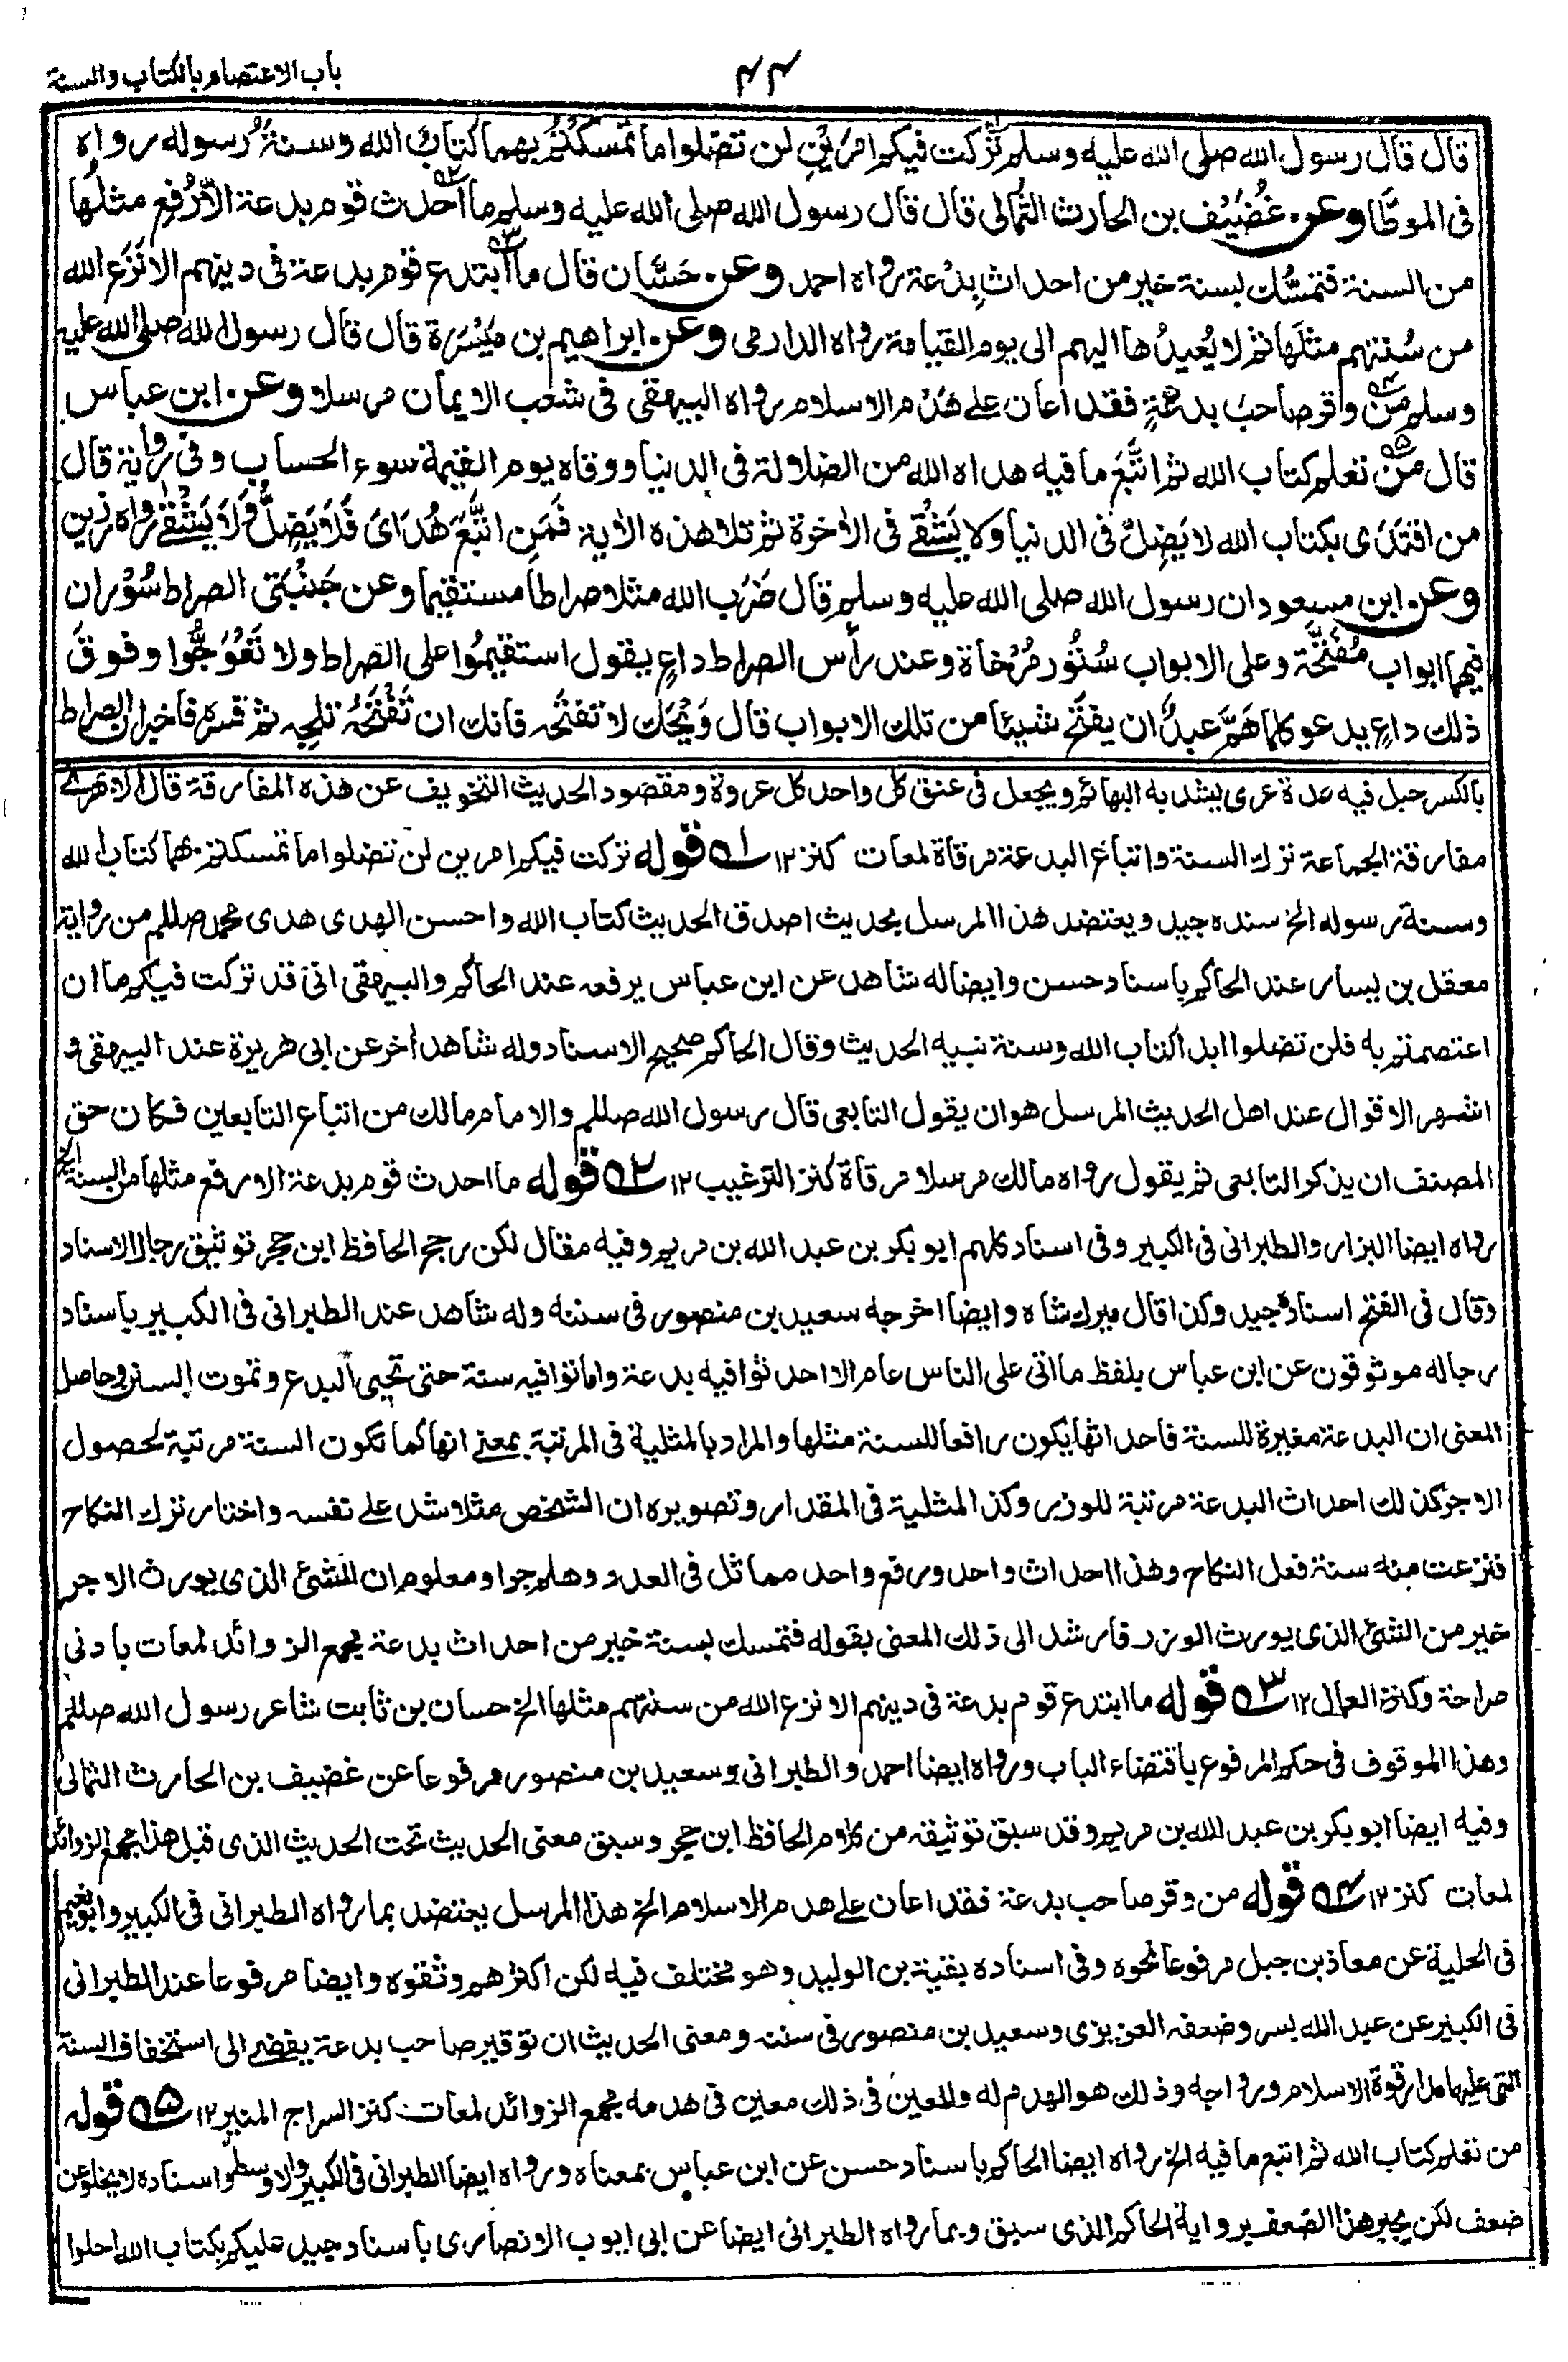 باب الاعتصام بالكتاب والسنة
٤٤
قال قال رسول الله صلى الله عليه وسلم تركت فيكم امرين لن تضلوا ما تمسكتم بهما كتاب الله وسنة رسوله رواه
فى الموطّا وعن غُضَيْف بن الحارث الثُّمالى قال قال رسول الله صلى الله عليه وسلم ما احدث قوم بدعة الا رُفع مثلُها
من السنة فتمسُّك بسنة خير من احداث بِدْعة رواه احمد وعن حَسَّان قال ما ابتدع قوم بدعة فى دينهم الا نَزَع الله
من سُنتهم مثلَها ثم لا يُعيدُها اليهم الى يوم القيامة رواه الدارمى وعن ابراهيم بن مَيْسَرة قال قال رسول الله صلى الله عليه
وسلم من وقر صاحبَ بدعةٍ فقد اعان على هَدْم الاسلام رواه البيهقى فى شعب الايمان مرسلا وعن ابن عباس
قال مَنْ تعلم كتاب الله ثم اتَّبَعَ ما فيه هداه الله من الضلالة فى الدنيا ووقاه يوم القيٰمة سوء الحساب وفى رواية قال
من اقتَدَى بكتاب الله لا يَضِلُّ فى الدنيا ولا يَشْقٰى فى الاٰخرة ثم تلا هذه الاٰية فَمَنِ اتَّبَعَ هُدَاىَ فَلَا يَضِلُّ وَلَا يَشْقٰى رواه رزين
وعن ابن مسعود ان رسول الله صلى الله عليه وسلم قال ضَرَب الله مثلا صراطا مستقيما وعن جَنْبَتَى الصراط سُوْران
فيهما ابواب مُفَتَّحَة وعلى الابواب سُتُور مُرْخاة وعند رأس الصراط داعٍ يقول استقيمُوا على الصراط ولا تَعْوَجُّوا وفوق
ذلك داعٍ يدعو كلما هَمَّ عبدٌ ان يفتح شيئا من تلك الابواب قال وَيْحَك لا تفتَحْه فانك ان تَفْتَحْهُ تلجه ثم فسره فاخبر ان الصراط
بالكسر حبل فيه عدة عرى يشد به البهائم ويجعل فى عنق كل واحد كل عروة ومقصود الحديث التخويف عن هذه المفارقة قال الازهرى
مفارقة الجماعة ترك السنة واتباع البدعة مرقاة لمعات كنز ١٢ ٥١ قوله تركت فيكم امرين لن تضلوا ما تمسكتم بهما كتاب الله
وسنة رسوله الخ سنده جيد ويعتضد هذا المرسل بحديث اصدق الحديث كتاب الله واحسن الهدى هدى محمد صللم من رواية
معقل بن يسار عند الحاكم باسناد حسن وايضا له شاهد عن ابن عباس يرفعه عند الحاكم والبيهقى انى قد تركت فيكم ما ان
اعتصمتم به فلن تضلوا ابدا كتاب الله وسنة نبيه الحديث وقال الحاكم صحيح الاسناد وله شاهد اٰخر عن ابى هريرة عند البيهقى و
اشهر الاقوال عند اهل الحديث المرسل هو ان يقول التابعى قال رسول الله صللم والامام مالك من اتباع التابعين فكان حق
المصنف ان يذكر التابعى ثم يقول رواه مالك مرسلا مرقاة كنز الترغيب ١٢ ٥٢ قوله ما احدث قوم بدعة الا رفع مثلها من السنة الخ
رواه ايضا البزار والطبرانى فى الكبير وفى اسناد كلهم ابو بكر بن عبد الله بن مريم وفيه مقال لكن رجح الحافظ ابن حجر توثيق رجال الاسناد
وقال فى الفتح اسناده جيد وكذا قال ميرك شاه وايضا اخرجه سعيد بن منصور فى سننه وله شاهد عند الطبرانى فى الكبير باسناد
رجاله موثوقون عن ابن عباس بلفظ ما اتى على الناس عام الا احدثوا فيه بدعة واماتوا فيه سنة حتى تحيى البدع وتموت السنن وحاصل
المعنى ان البدعة مغيرة للسنة فاحداثها يكون رافعا للسنة مثلها والمراد بالمثلية فى المرتبة بمعنى انها كما تكون السنة مرتبة لحصول
الاجر كذلك احداث البدعة مرتبة للوزر وكذا المثلية فى المقدار وتصويره ان الشخص مثلا شد على نفسه واختار ترك النكاح
فنزعت منه سنة فعل النكاح وهذا احداث واحد ورفع واحد مماثل فى العدد وهلم جرا ومعلوم ان الشئ الذى يورث الاجر
خير من الشئ الذى يورث الوزر فارشد الى ذلك المعنى بقوله فتمسك بسنة خير من احداث بدعة مجمع الزوائد لمعات بادنى
صراحة وكنز العمال ١٢ ٥٣ قوله ما ابتدع قوم بدعة فى دينهم الا نزع الله من سنتهم مثلها الخ حسان بن ثابت شاعر رسول الله صللم
وهذا الموقوف فى حكم المرفوع باقتضاء الباب ورواه ايضا احمد والطبرانى وسعيد بن منصور مرفوعا عن غضيف بن الحارث الثمالى
وفيه ايضا ابو بكر بن عبد الله بن مريم وقد سبق توثيقه من كلام الحافظ ابن حجر وسبق معنى الحديث تحت الحديث الذى قبل هذا مجمع الزوائد
لمعات كنز ١٢ ٥٤ قوله من وقر صاحب بدعة فقد اعان على هدم الاسلام الخ هذا المرسل يعتضد بما رواه الطبرانى فى الكبير وابو نعيم
فى الحلية عن معاذ بن جبل مرفوعا نحوه وفى اسناده بقية بن الوليد وهو مختلف فيه لكن اكثرهم وثقوه وايضا مرفوعا عند الطبرانى
فى الكبير عن عبد الله بسر وضعفه العزيزى وسعيد بن منصور فى سننه ومعنى الحديث ان توقير صاحب بدعة يفضى الى استخفاف السنة
التى عليها مدار قوة الاسلام ورواجه وذلك هو الهدم له والمعين فى ذلك معين فى هدمه مجمع الزوائد لمعات كنز السراج المنير ١٢ ٥٥ قوله
من تعلم كتاب الله ثم اتبع ما فيه الخ رواه ايضا الحاكم باسناد حسن عن ابن عباس بمعناه ورواه ايضا الطبرانى فى الكبير والاوسط واسناده لا يخلو عن
ضعف لكن يجبر هذا الضعف برواية الحاكم الذى سبق وبما رواه الطبرانى ايضا عن ابى ايوب الانصارى باسناد جيد عليكم بكتاب الله احلوا